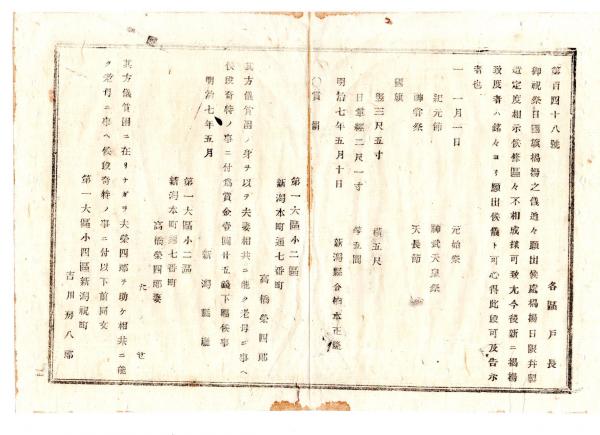 第百四十八號
各區戸長
御祝祭日國旗揭揚之儀追々願出候處揭揚日限幷製
造定度相示候條區々不相成樣可致尤今後新ニ揭揚
致度者ハ銘々ヨリ願出候儀ト可心得此段可及告示
者也
一 一月一日 元始祭
紀元節 神武天皇祭
神嘗祭 天長節
國旗
豎三尺五寸 橫五尺
日輪經二尺一寸
明治七年五月十日 新潟縣令楠本正隆
○賞詞
第一大區小二區
新潟本町通七番町
高橋榮四郎
其方儀貧困ノ身ヲ以テ夫妻相共ニ能ク老母ニ事ヘ
候段奇特ノ事ニ付爲賞金壹圓廿五錢下賜候事
明治七年五月 新潟縣廳
第一大區小二區
新潟本町通七番町
高橋榮四郎妻
たせ
其方儀貧困ニ在リナガラ夫榮四郎ヲ助ケ相共ニ能
ク老母ニ事ヘ候段奇特ノ事ニ付以下前同文
第一大區小四區新潟祝町
吉川房八郎